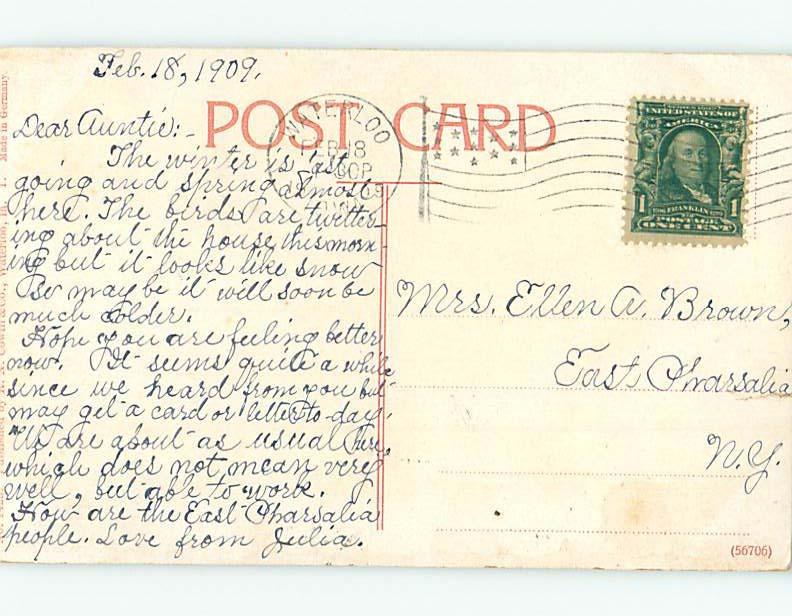 Feb. 18, 1909.
POST CARD
Dear Auntie:-
The winter is fast
going and spring almost
here. The birds are twitter-
ing about the house this morn-
ing but it looks like snow
so may be it will soon be
much colder.
Hope you are feeling better
now. It seems quite a while
since we heard from you but
may get a card or letter to-day.
We are about as usual here,
which does not mean very
well, but able to work.
How are the East Pharsalia
people. Love from Julia.
WATERLOO
FEB 18
UNITED STATES OF
AMERICA
1 FRANKLIN 1
POSTAGE
ONE CENT
Mrs. Ellen A. Brown,
East Pharsalia
N.Y.
(56706)
Waterloo, Made in Germany